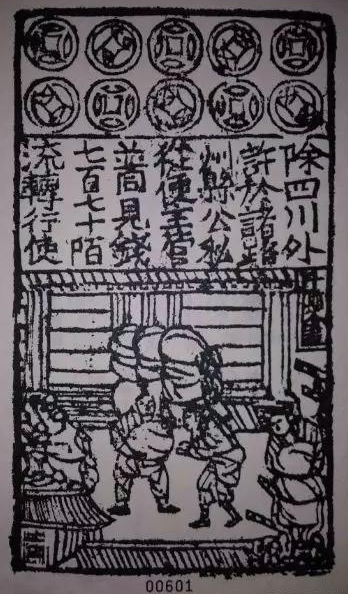 除四川外
許於諸路
州縣公私
從便主管
並同見錢
七百七十陌
流轉行使
00601